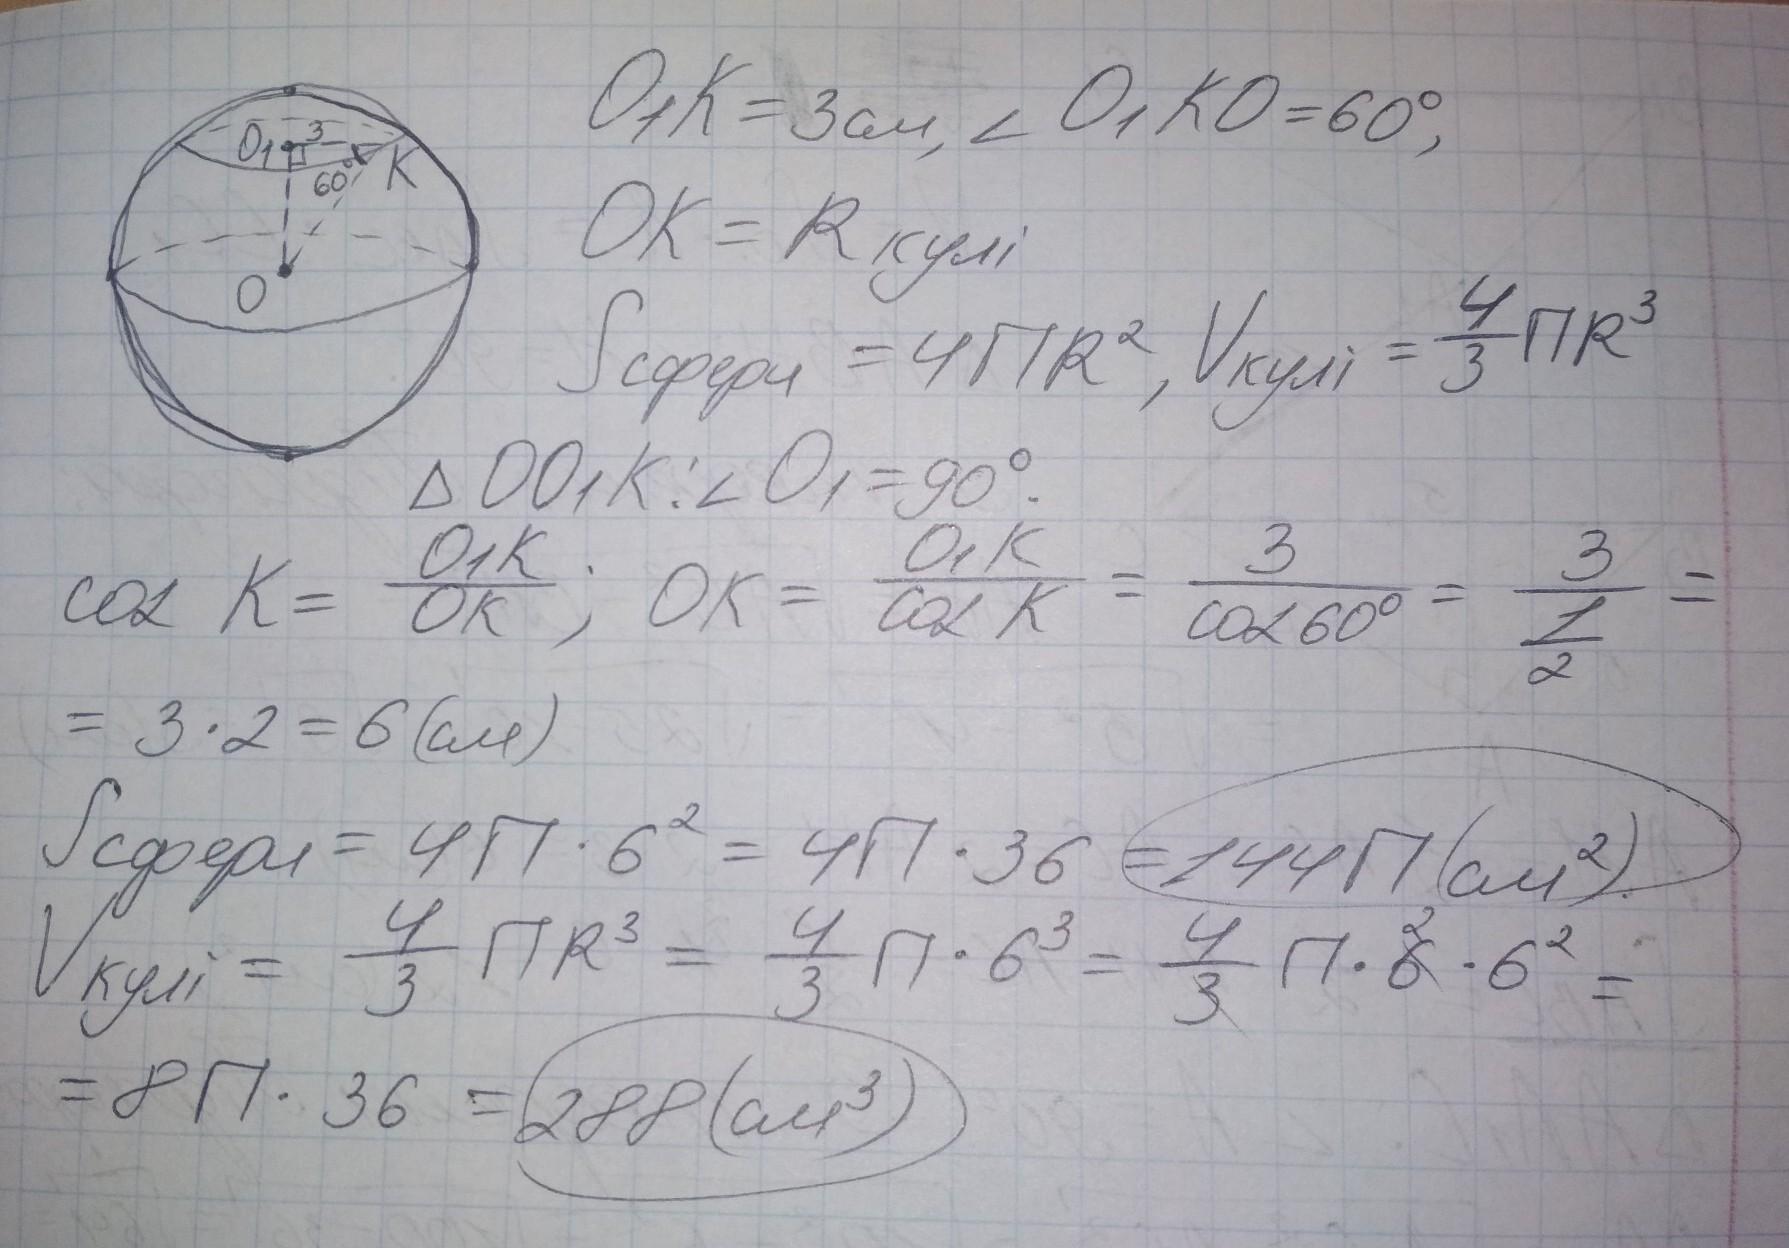 O₁K = 3 см, ∠ O₁KO = 60°,
O₁ 3
60° K
O
OK = R кулі
Sсфери = 4ПR², Vкулі = 4/3 ПR³
△ OO₁K: ∠ O₁ = 90°.
cos K = O₁K/OK ; OK = O₁K/cos K = 3/cos 60° = 3/(1/2) =
= 3 · 2 = 6 (см)
Sсфери = 4П · 6² = 4П · 36 = 144П (см²).
Vкулі = 4/3 ПR³ = 4/3 П · 6³ = 4/3 П · 6 2 · 6² =
= 8П · 36 = 288 (см³)